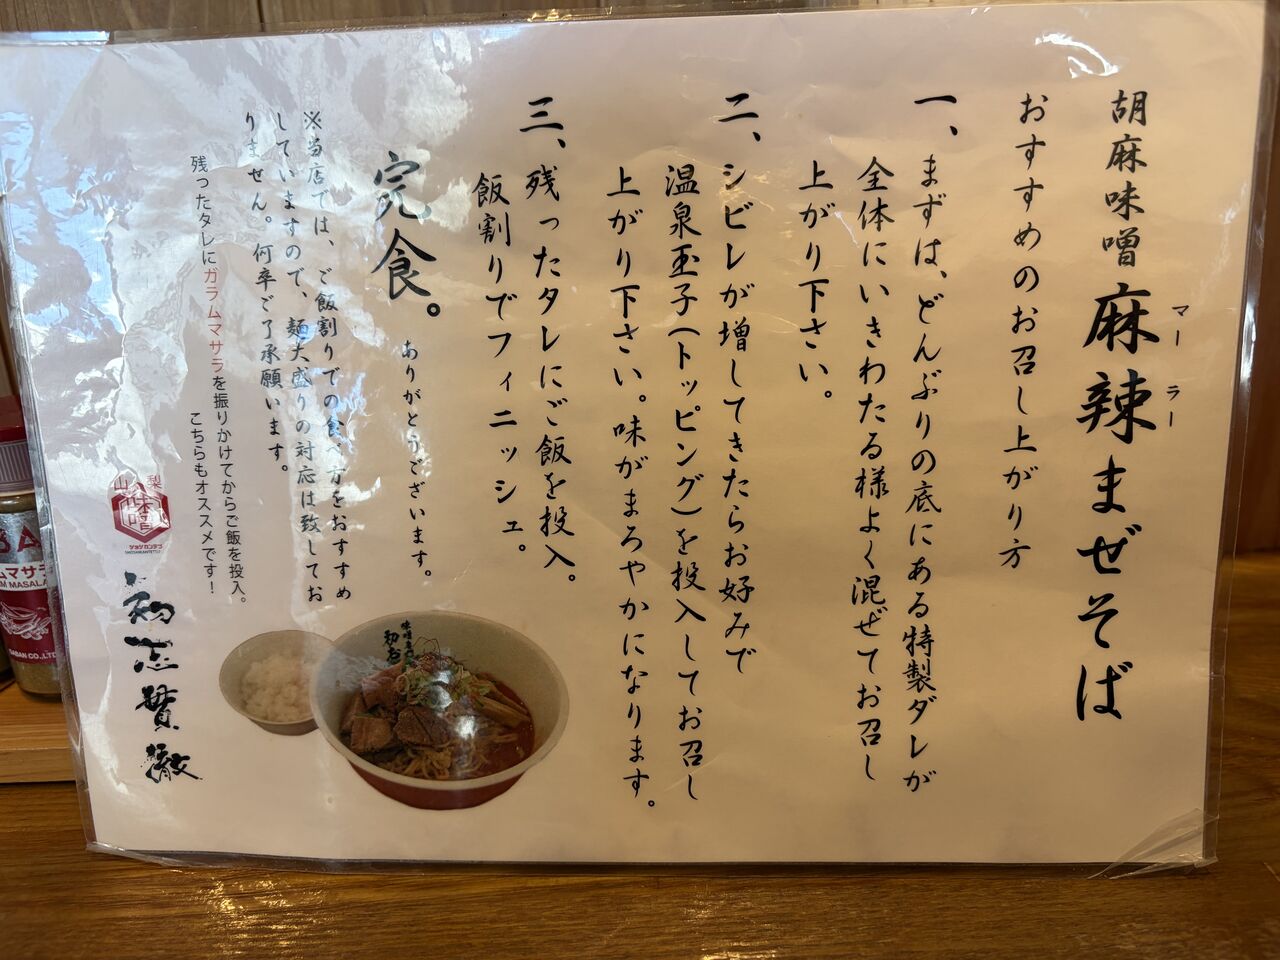 胡麻味噌麻辣まぜそば
マーラー
おすすめのお召し上がり方
一、まずは、どんぶりの底にある特製ダレが
全体にいきわたる様よく混ぜてお召し
上がり下さい。
二、シビレが増してきたらお好みで
温泉玉子(トッピング)を投入してお召し
上がり下さい。味がまろやかになります。
三、残ったタレにご飯を投入。
飯割りでフィニッシュ。
完食。
ありがとうございます。
※当店では、ご飯割りでの食べ方をおすすめ
していますので、麺大盛りの対応は致してお
りません。何卒ご了承願います。
残ったタレにガラムマサラを振りかけてからご飯を投入。
こちらもオススメです!
山梨
味噌
ショシカンテツ
SHOSHIKANTETSU
初志貫徹
ムマサラ
MASALA
SABAN CO.,LTD